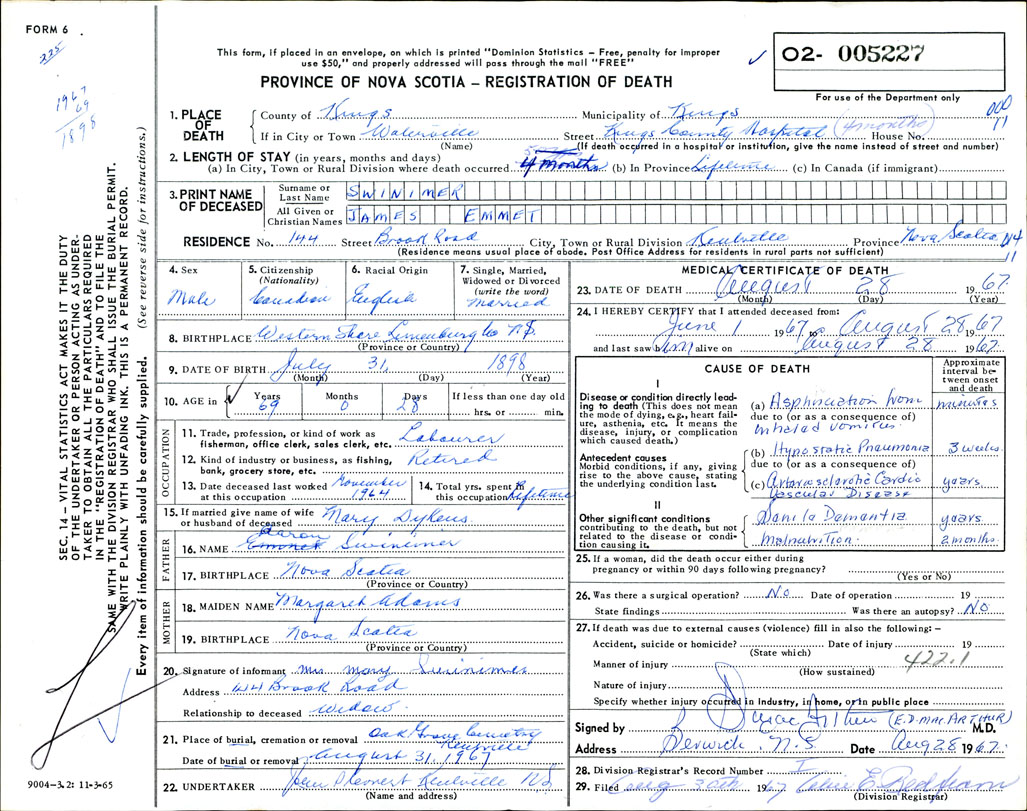 FORM 6
225
1967
69
1898
This form, if placed in an envelope, on which is printed "Dominion Statistics – Free, penalty for improper
use $50," and properly addressed will pass through the mail "FREE"
PROVINCE OF NOVA SCOTIA – REGISTRATION OF DEATH
O2- 005227
For use of the Department only
000
11
1. PLACE OF DEATH
County of Kings Municipality of Kings
If in City or Town Waterville Street Kings County Hospital (4 months) House No.
(Name) (If death occurred in a hospital or institution, give the name instead of street and number)
2. LENGTH OF STAY (in years, months and days)
(a) In City, Town or Rural Division where death occurred 4 months (b) In Province Lifetime (c) In Canada (if immigrant)
3. PRINT NAME OF DECEASED
Surname or Last Name SWINIMER
All Given or Christian Names JAMES EMMET
RESIDENCE No. 144 Street Brook Road City, Town or Rural Division Kentville Province Nova Scotia
(Residence means usual place of abode. Post Office Address for residents in rural parts not sufficient)
11
4. Sex
Male
5. Citizenship (Nationality)
Canadian
6. Racial Origin
English
7. Single, Married, Widowed or Divorced (write the word)
Married
8. BIRTHPLACE Western Shore Lunenburg Co N.S.
(Province or Country)
9. DATE OF BIRTH July 31, 1898
(Month) (Day) (Year)
10. AGE in Years Months Days If less than one day old
69 0 28 hrs. or min.
OCCUPATION
11. Trade, profession, or kind of work as fisherman, office clerk, sales clerk, etc. Labourer
12. Kind of industry or business, as fishing, bank, grocery store, etc. Retired
13. Date deceased last worked at this occupation November 1964
14. Total yrs. spent in this occupation Lifetime
15. If married give name of wife or husband of deceased Mary Dykens
FATHER
16. NAME Aaron Swinimer
17. BIRTHPLACE Nova Scotia
(Province or Country)
MOTHER
18. MAIDEN NAME Margaret Adams
19. BIRTHPLACE Nova Scotia
(Province or Country)
20. Signature of informant Mrs. Mary Swinimer
Address 144 Brook Road
Relationship to deceased Widow
21. Place of burial, cremation or removal Oak Grove Cemetery Kentville
Date of burial or removal August 31, 1967
22. UNDERTAKER Kentville NS
(Name and address)
MEDICAL CERTIFICATE OF DEATH
23. DATE OF DEATH August 28 1967
(Month) (Day) (Year)
24. I HEREBY CERTIFY that I attended deceased from:
June 1 1967 to August 28 1967
and last saw him alive on August 28 1967
CAUSE OF DEATH
Approximate interval between onset and death
I
Disease or condition directly leading to death (This does not mean the mode of dying, e.g., heart failure, asthenia, etc. It means the disease, injury, or complication which caused death.)
(a) Asphyxiation from minutes
due to (or as a consequence of)
inhaled vomitus.
Antecedent causes
Morbid conditions, if any, giving rise to the above cause, stating the underlying condition last.
(b) Hypostatic Pneumonia 3 weeks
due to (or as a consequence of)
(c) Arteriosclerotic Cardio Vascular Disease years
II
Other significant conditions contributing to the death, but not related to the disease or condition causing it.
Senile Dementia years
Malnutrition. 2 months
25. If a woman, did the death occur either during pregnancy or within 90 days following pregnancy?
(Yes or No)
26. Was there a surgical operation? No Date of operation 19
State findings Was there an autopsy? No
27. If death was due to external causes (violence) fill in also the following: –
Accident, suicide or homicide? Date of injury 19
(State which)
Manner of injury 422.1
(How sustained)
Nature of injury
Specify whether injury occurred in industry, in home, or in public place
Signed by (E.D. MacARTHUR) M.D.
Address Berwick, N.S. Date Aug 28 1967.
28. Division Registrar's Record Number
29. Filed Aug 30th 1967
(Division Registrar)
SEC. 14 – VITAL STATISTICS ACT MAKES IT THE DUTY
OF THE UNDERTAKER OR PERSON ACTING AS UNDER-
TAKER TO OBTAIN ALL THE PARTICULARS REQUIRED
IN THE "REGISTRATION OF DEATH" AND TO FILE THE
SAME WITH THE DIVISION REGISTRAR WHO SHALL ISSUE THE BURIAL PERMIT.
WRITE PLAINLY WITH UNFADING INK. THIS IS A PERMANENT RECORD.
Every item of information should be carefully supplied. (See reverse side for instructions.)
9004-3.2: 11-3-65